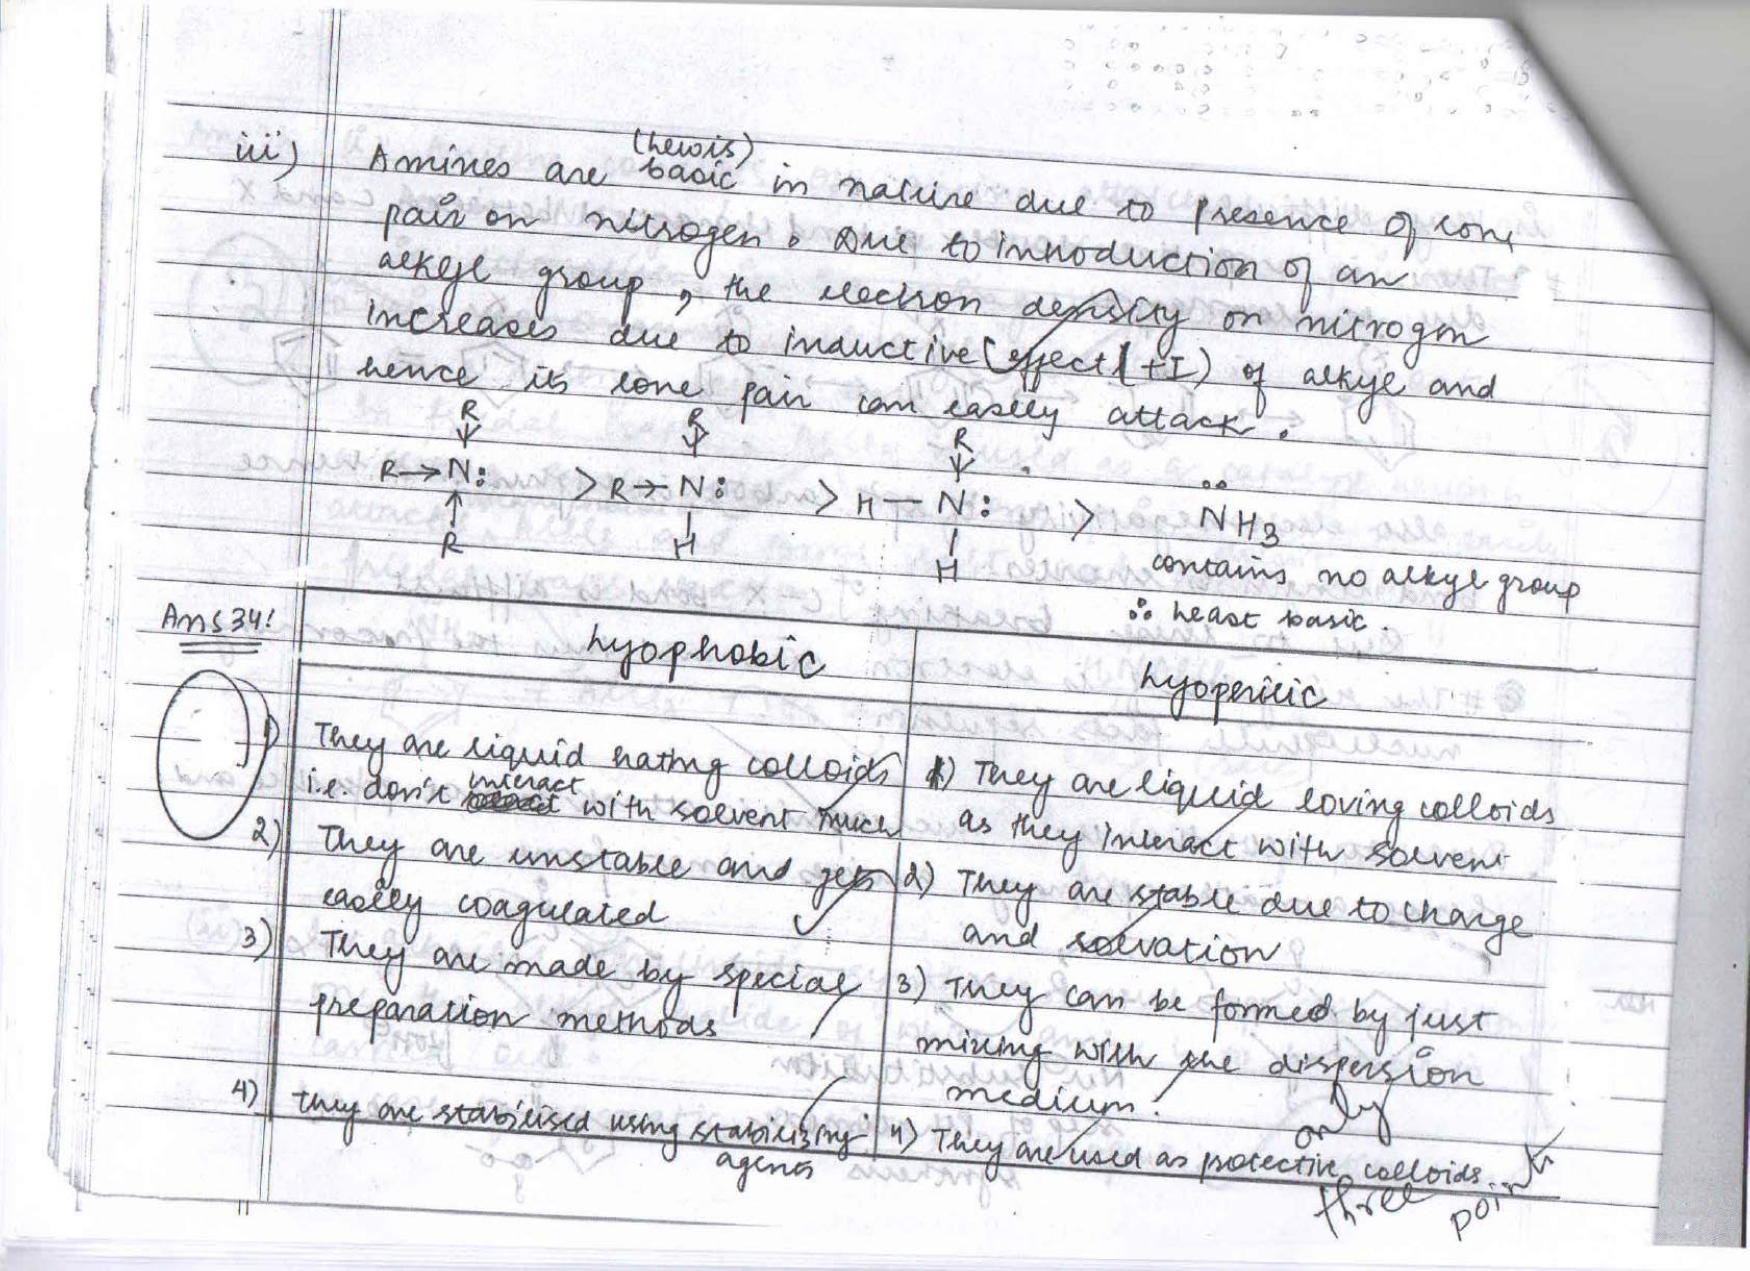 (Lewis)
iii) Amines are basic in nature due to presence of lone
pair on nitrogen. Due to introduction of an
alkyl group, the electron density on nitrogen
increases due to inductive effect (+I) of alkyl and
hence its lone pair can easily attack.
R R R
R→N: > R→N: > H—N: > NH3
R H H contains no alkyl group
∴ Least basic.
Ans 34!
Lyophobic Lyophilic
1) They are liquid hating colloids
i.e. don't interact with solvent much
1) They are liquid loving colloids
as they interact with solvent
2) They are unstable and gets
easily coagulated
2) They are stable due to charge
and solvation
3) They are made by special
preparation methods
3) They can be formed by just
mixing with the dispersion
medium.
4) They are stabilised using stabilizing
agents
4) They are used as protective colloids
only
three
point